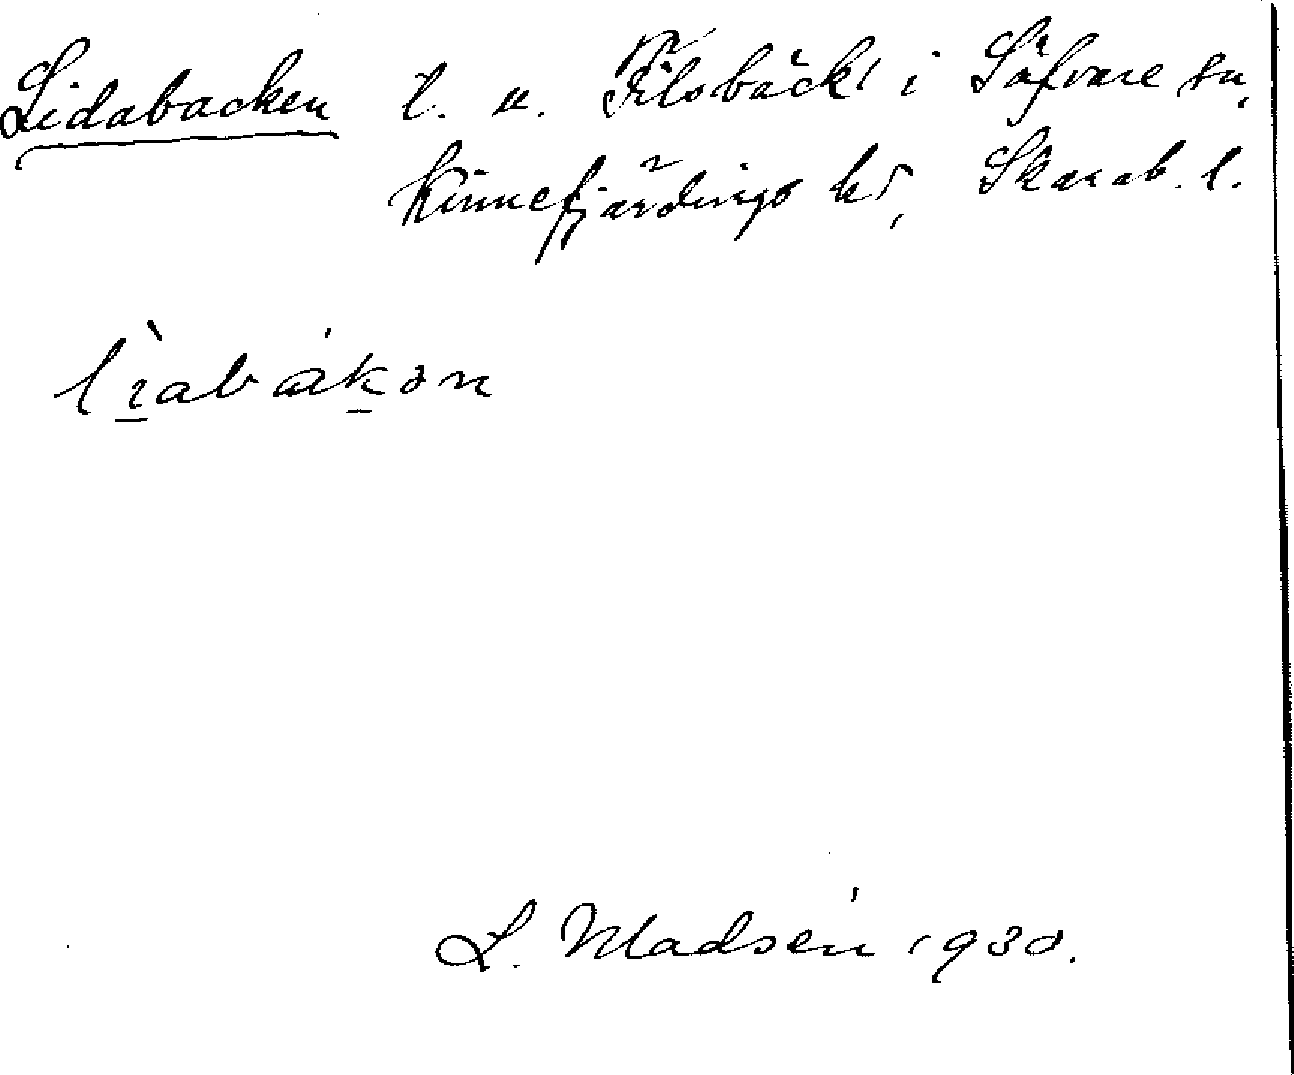 Lidabacken l. u. Filsbäck i Säfvare sn,
Kinnefjärdings hd, Skarab. l.
lìabakən
L. Madsén 1930.